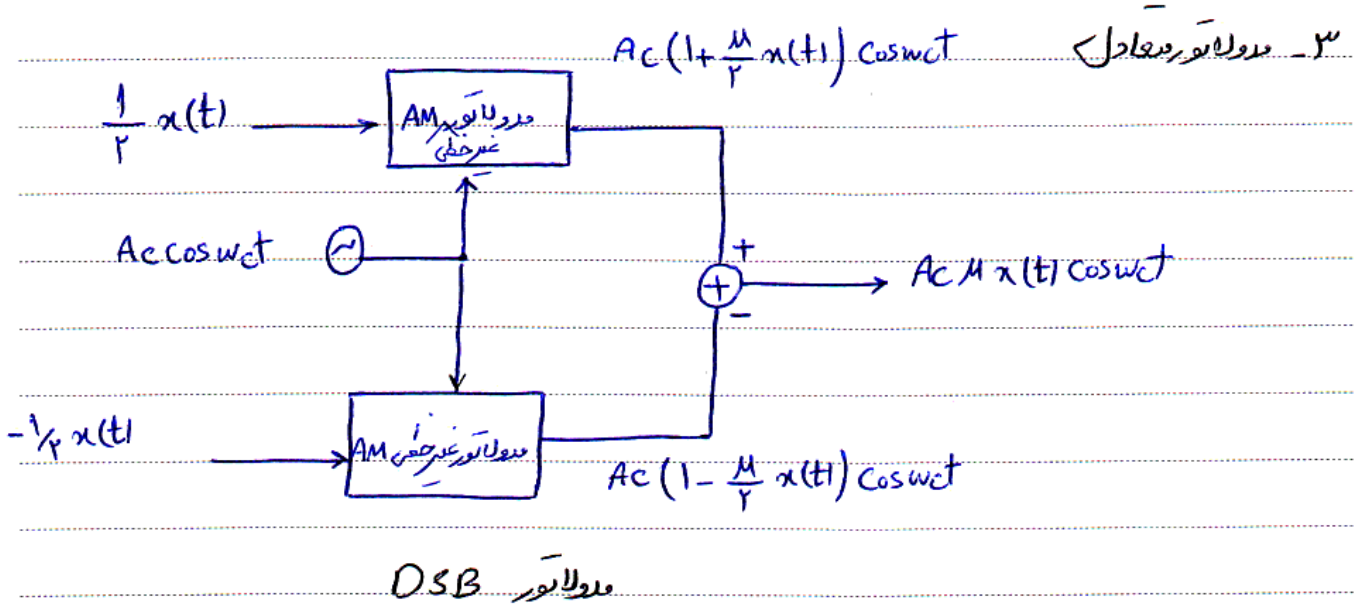 ۳- مدولاتور متعادل
Ac(1+ μ/۲ x(t)) cosωct
1/۲ x(t)
مدولاتور AM
غیرخطی
Ac cosωct
~
+
+
-
Ac μ x(t) cosωct
-1/۲ x(t)
مدولاتور غیرخطی AM
Ac(1- μ/۲ x(t)) cosωct
مدولاتور DSB